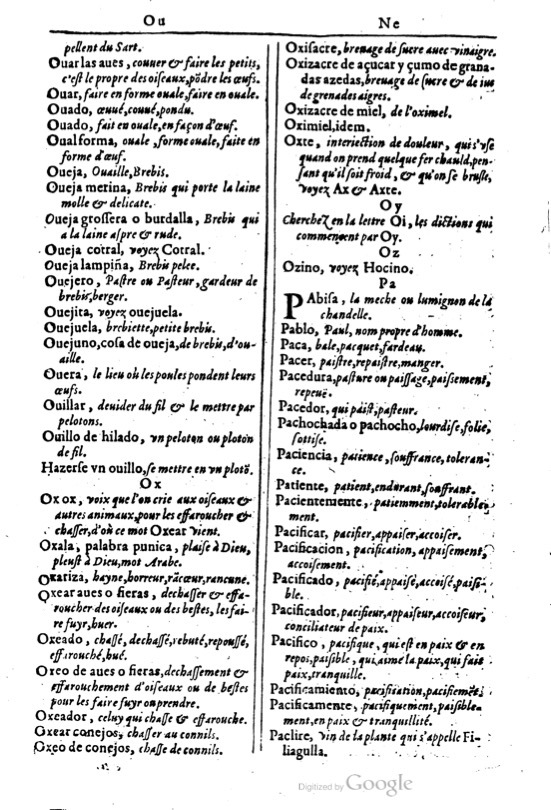 Ou
pellent du Sart.
Ouar las aues, couuer & faire les petits,
c'est le propre des oiseaux, põdre les œufs.
Ouar, faire en forme ouale, faire en ouale.
Ouado, œuué, coué, pondu.
Ouado, fait en ouale, en façon d'œuf.
Oual forma, ouale, forme ouale, faite en
forme d'œuf.
Oueja, Ouaille, Brebis.
Oueja merina, Brebis qui porte la laine
molle & delicate.
Oueja grossera o burdalla, Brebis qui
a la laine aspre & rude.
Oueja corral, voyez Corral.
Oueja lampiña, Brebis pelee.
Ouejero, Pastre ou Pasteur, gardeur de
brebis, berger.
Ouejita, voyez ouejuela.
Ouejuela, brebiette, petite brebis.
Ouejuno, cosa de oueja, de brebis, d'ou-
aille.
Ouera, le lieu où les poules pondent leurs
œufs.
Ouillar, deuider du fil & le mettre par
pelotons.
Ouillo de hilado, vn peloton ou ploton
de fil.
Hazerse vn ouillo, se mettre en vn plotõ.
Ox
Ox ox, voix que l'on crie aux oiseaux &
autres animaux, pour les effaroucher &
chasser, d'où ce mot Oxear vient.
Oxala, palabra punica, plaise à Dieu,
pleust à Dieu, mot Arabe.
Oxariza, hayne, horreur, rãcœur, rancune.
Oxear aues o fieras, dechasser & effa-
roucher des oiseaux ou des bestes, les fai-
re fuyr, huer.
Oxeado, chassé, dechassé, rebuté, repoussé,
effarouché, hué.
Oxeo de aues o fieras, dechassement &
effarouchement d'oiseaux ou de bestes
pour les faire fuyr ou prendre.
Oxeador, celuy qui chasse & effarouche.
Oxear conejos, chasser au connils.
Oxeo de conejos, chasse de connils.
Ne
Oxisacre, breuage de sucre auec vinaigre.
Oxizacre de açucar y çumo de grana-
das azedas, breuage de sucre & de ius
de grenades aigres.
Oxizacre de miel, de l'oximel.
Oximiel, idem.
Oxte, interiection de douleur, qui s'vse
quand on prend quelque fer chauld, pen-
sant qu'il soit froid, & qu'on se brusle,
voyez Ax & Axte.
Oy
Cherchez en la lettre Oi, les dictions qui
commencent par Oy.
Oz
Ozino, voyez Hocino.
Pa
PAbisa, la meche ou lumignon de la
chandelle.
Pablo, Paul, nom propre d'homme.
Paca, bale, pacquet, fardeau.
Pacer, paistre, repaistre, manger.
Pacedura, pasture ou paissage, paissement,
repeuë.
Pacedor, qui paist, pasteur.
Pachochada o pachocho, lourdise, folie,
sottise.
Paciencia, patience, souffrance, toleran-
ce.
Patiente, patient, endurant, souffrant.
Pacientemente, patiemment, tolerable-
ment.
Pacificar, pacifier, appaiser, accoiser.
Pacificacion, pacification, appaisement,
accoisement.
Pacificado, pacifié, appaisé, accoisé, paisi-
ble.
Pacificador, pacifieur, appaiseur, accoiseur,
conciliateur de paix.
Pacifico, pacifique, qui est en paix & en
repos, paisible, qui aime la paix, qui fait
paix, tranquille.
Pacificamiento, pacification, pacifiemẽt.
Pacificamente, pacifiquement, paisible-
ment, en paix & tranquillité.
Paclire, vin de la plante qui s'appelle Fi-
liagulla.
Digitized by Google